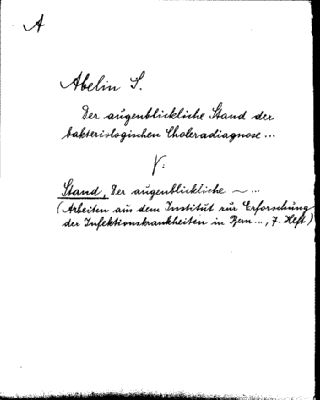 A
Abelin S.
Der augenblickliche Stand der
bakteriologischen Choleradiagnose ...
V:
Stand, Der augenblickliche ~ ...
(Arbeiten aus dem Institut zur Erforschung
der Infektionskrankheiten in Bern ..., 7. Heft.)